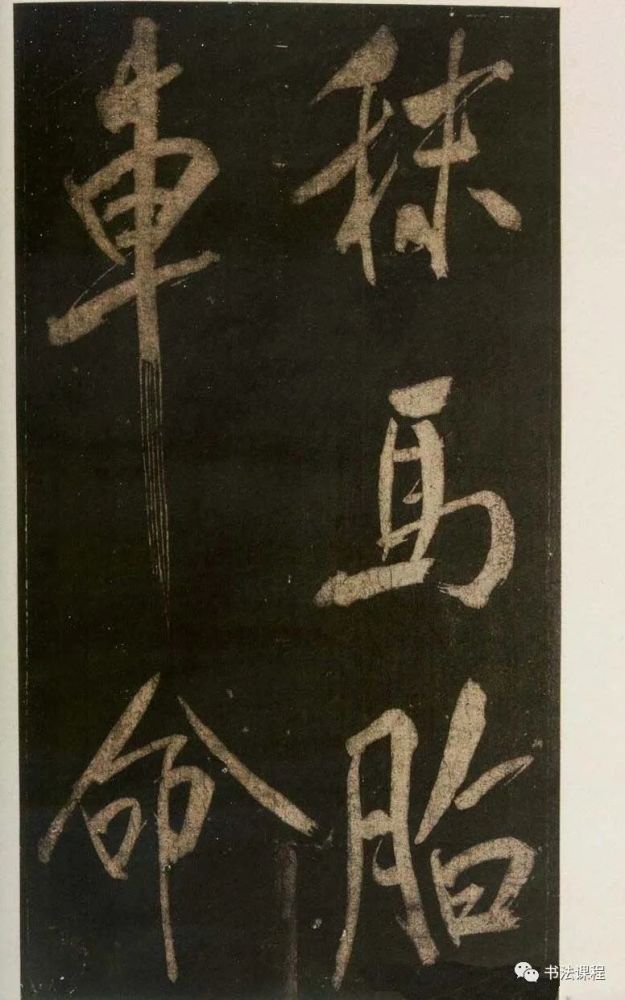 秣馬脂
車命
书法课程